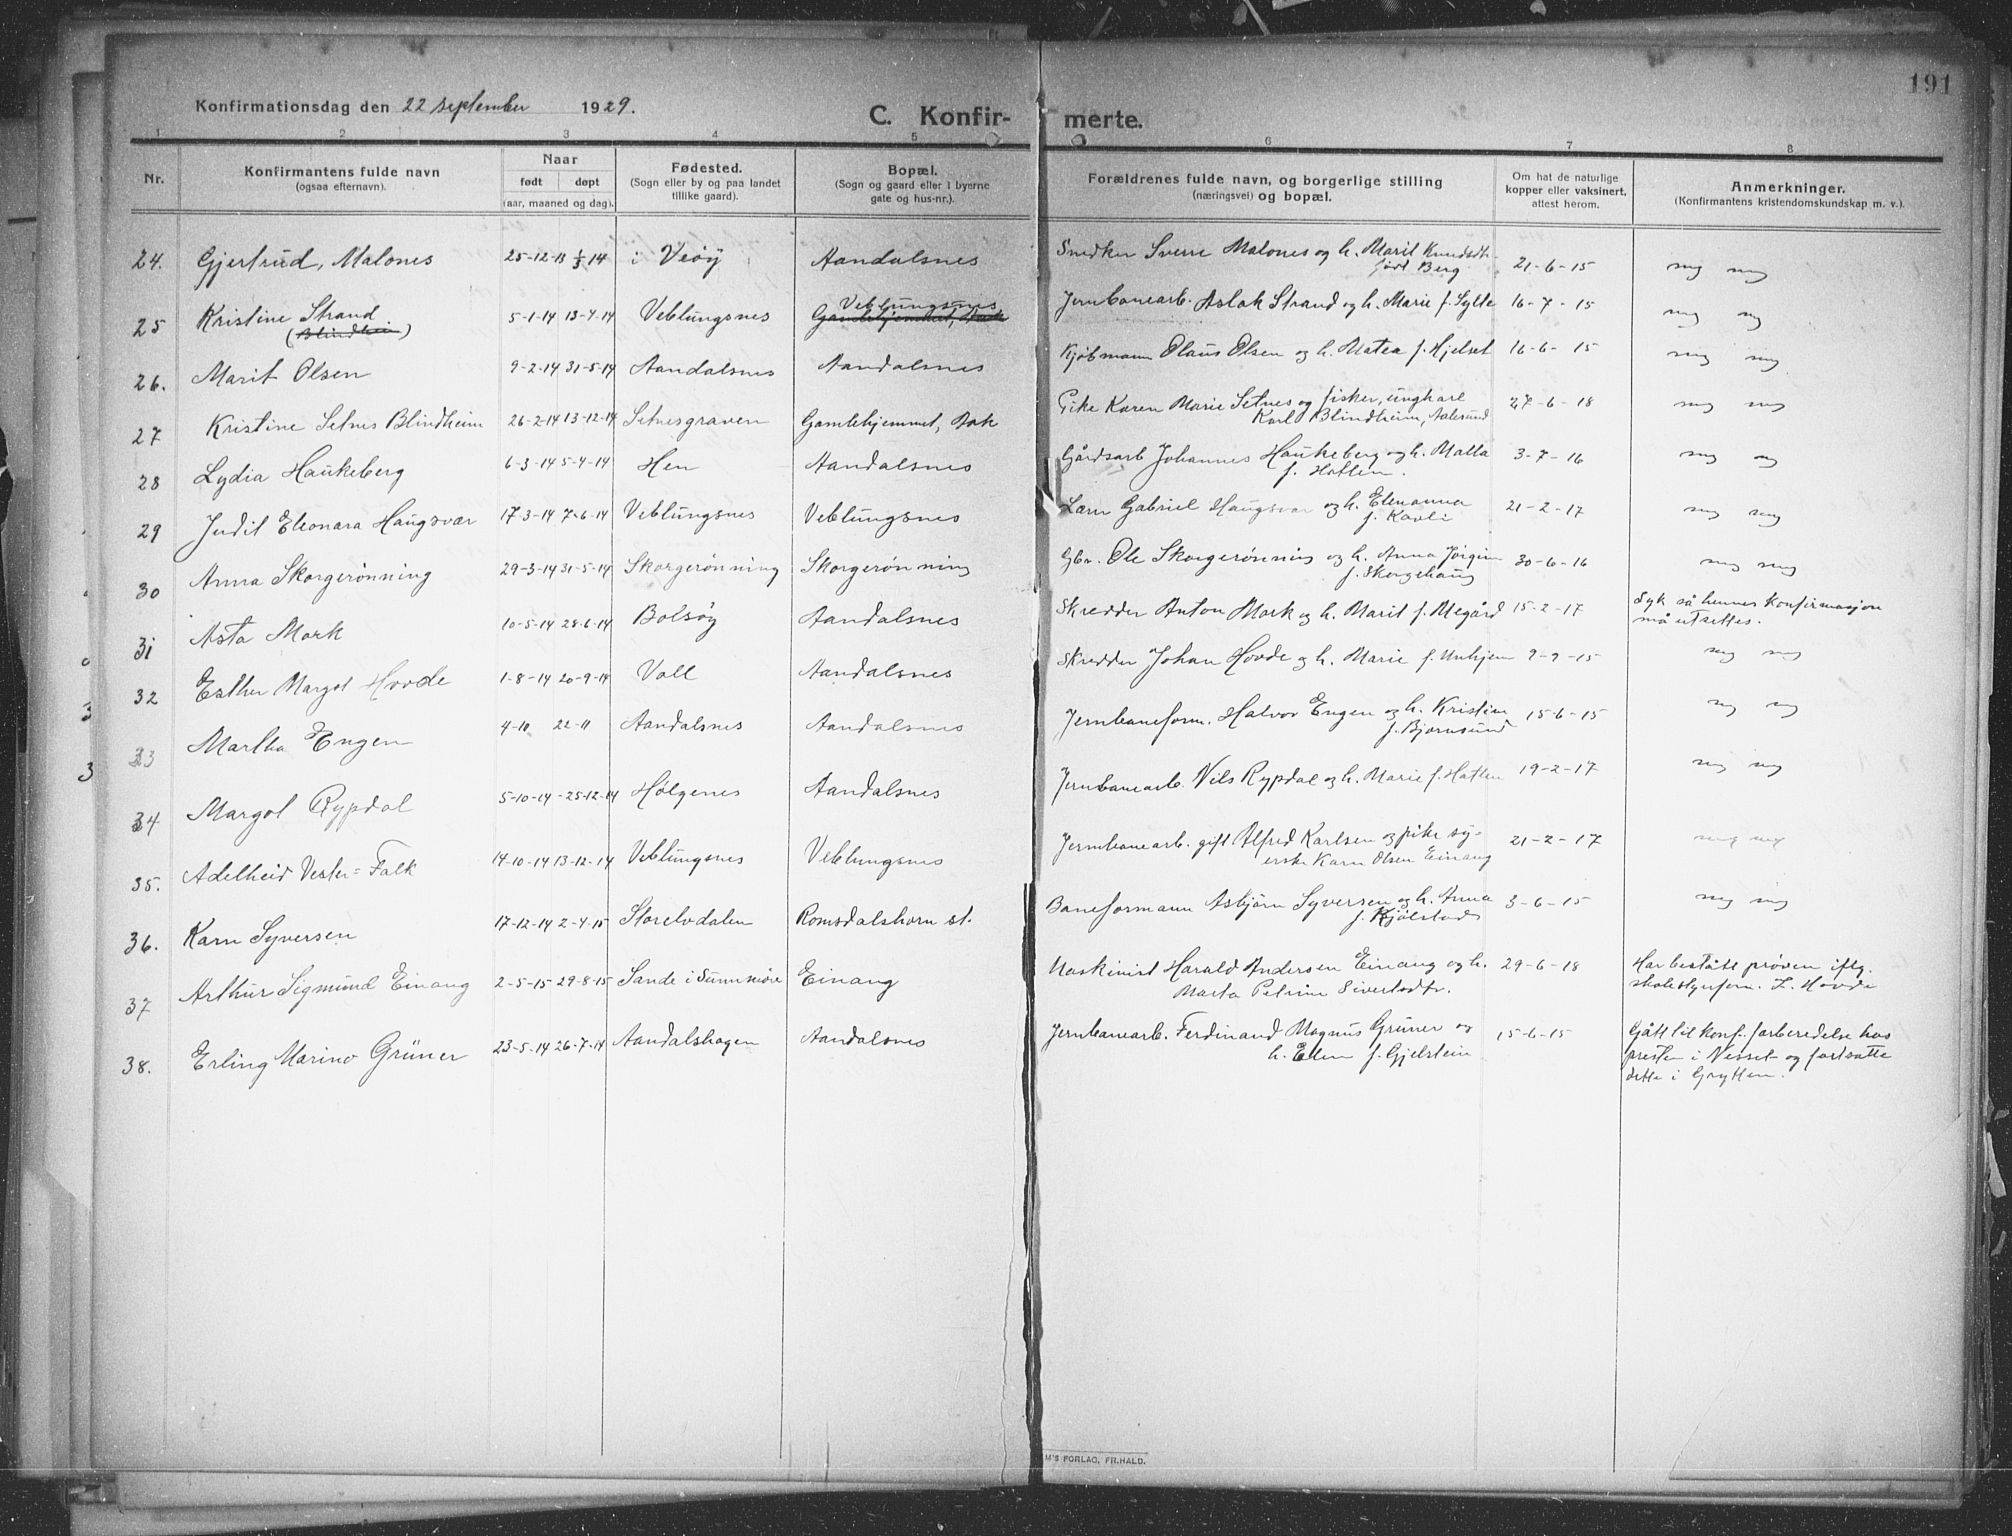 191
Konfirmationsdag den 22 september 1929.
C. Konfir- merte.
1 2 3 4 5 6 7 8
Nr.
Konfirmantens fulde navn
(ogsaa efternavn).
Naar
født døpt
(aar, maaned og dag).
Fødested.
(Sogn eller by og paa landet
tillike gaard).
Bopæl.
(Sogn og gaard eller i byerne
gate og hus-nr.).
Forældrenes fulde navn, og borgerlige stilling
(næringsvei) og bopæl.
Om hat de naturlige
kopper eller vaksinert,
attest herom.
Anmerkninger.
(Konfirmantens kristendomskundskap m. v.).
24. Gjertrud, Malones 25-12-13 1/3 14 i Veøy Aandalsnes Snedker Sverre Malones og h. Marit Knudsdtr. 21-6-15 mg mg
født Berg
25 Kristine Strand 5-1-14 13-4-14 Veblungsnes Veblungsnes Jernbanearb. Aslak Strand og h. Marie f. Sylte 16-7-15 mg mg
(Blindheim) Gamlehjemmet, Bak
26. Marit Olsen 9-2-14 31-5-14 Aandalsnes Aandalsnes Kjøbmann Olaus Olsen og h. Matea f. Hjelset 16-6-15 mg mg
27 Kristine Setnes Blindheim 26-2-14 13-12-14 Setnesgraven Gamlehjemmet, Bak Pike Karen Marie Setnes og fisker, ungkarl 27-6-18 mg mg
Karl Blindheim, Aalesund
28 Lydia Haukeberg 6-3-14 5-4-14 Hen Aandalsnes Gårdsarb Johannes Haukeberg og h. Malla 3-7-16 mg mg
f. Hatlen.
29 Judit Eleonara Haugsvær 17-3-14 7-6-14 Veblungsnes Veblungsnes Lærer Gabriel Haugsvær og h. Elenanna 21-2-17 mg mg
f. Kavli
30 Anna Skorgerønning 29-3-14 31-5-14 Skorgerønning Skorgerønning Gbr. Ole Skorgerønning og h. Anna Jørgine 30-6-16 mg mg
f. Skorgehaug
31 Asta Mork 10-5-14 28-6-14 Bolsøy Aandalsnes Skredder Anton Mork og h. Marit f. Megård 15-2-17 Syk så hennes konfirmasjon
må utsettes.
32 Esther Margot Hovde 1-8-14 20-9-14 Voll Aandalsnes Skredder Johan Hovde og h. Marie f. Unhjem 9-9-15 mg mg
33 Martha Engen 4-10 22-11 Aandalsnes Aandalsnes Jernbaneform. Halvor Engen og h. Kristine 15-6-15 mg mg
f. Bjørnsund
34 Margot Rypdal 5-10-14 - 25-12-14 Holgenes Aandalsnes Jernbanearb. Nils Rypdal og h. Marie f. Hatlen 19-2-17 mg mg
35. Adelheid Vester=Falk 14-10-14 13-12-14 Veblungsnes Veblungsnes Jernbanearb. gift Alfred Karlsen og pike sy- 21-2-17 mg mg
erske Karn Olsen Einang
36. Karn Syversen 17-12-14 2-4-15 Storelvdalen Romsdalshorn st. Baneformann Asbjørn Syversen og h. Anna 3-6-15 mg mg
f. Kjølstad
37 Arthur Sigmund Einang 2-5-15 29-8-15 Sande i Sunnmøre Einang Maskinist Harald Andersen Einang og h. 29-6-18 Har bestått prøven iflg.
Marta Petrine Sivertsdtr. skolestyreform. L. Hovde
38. Erling Marino Grüner 23-5-14 26-7-14 Aandalshagen Aandalsnes Jernbanearb. Ferdinand Magnus Grüner og 15-6-15 Gått til konf. forberedelse hos
h. Elen f. Gjelstein presten i Nesset og fortsatte
dette i Grytten.
M'S FORLAG, FR.HALD.